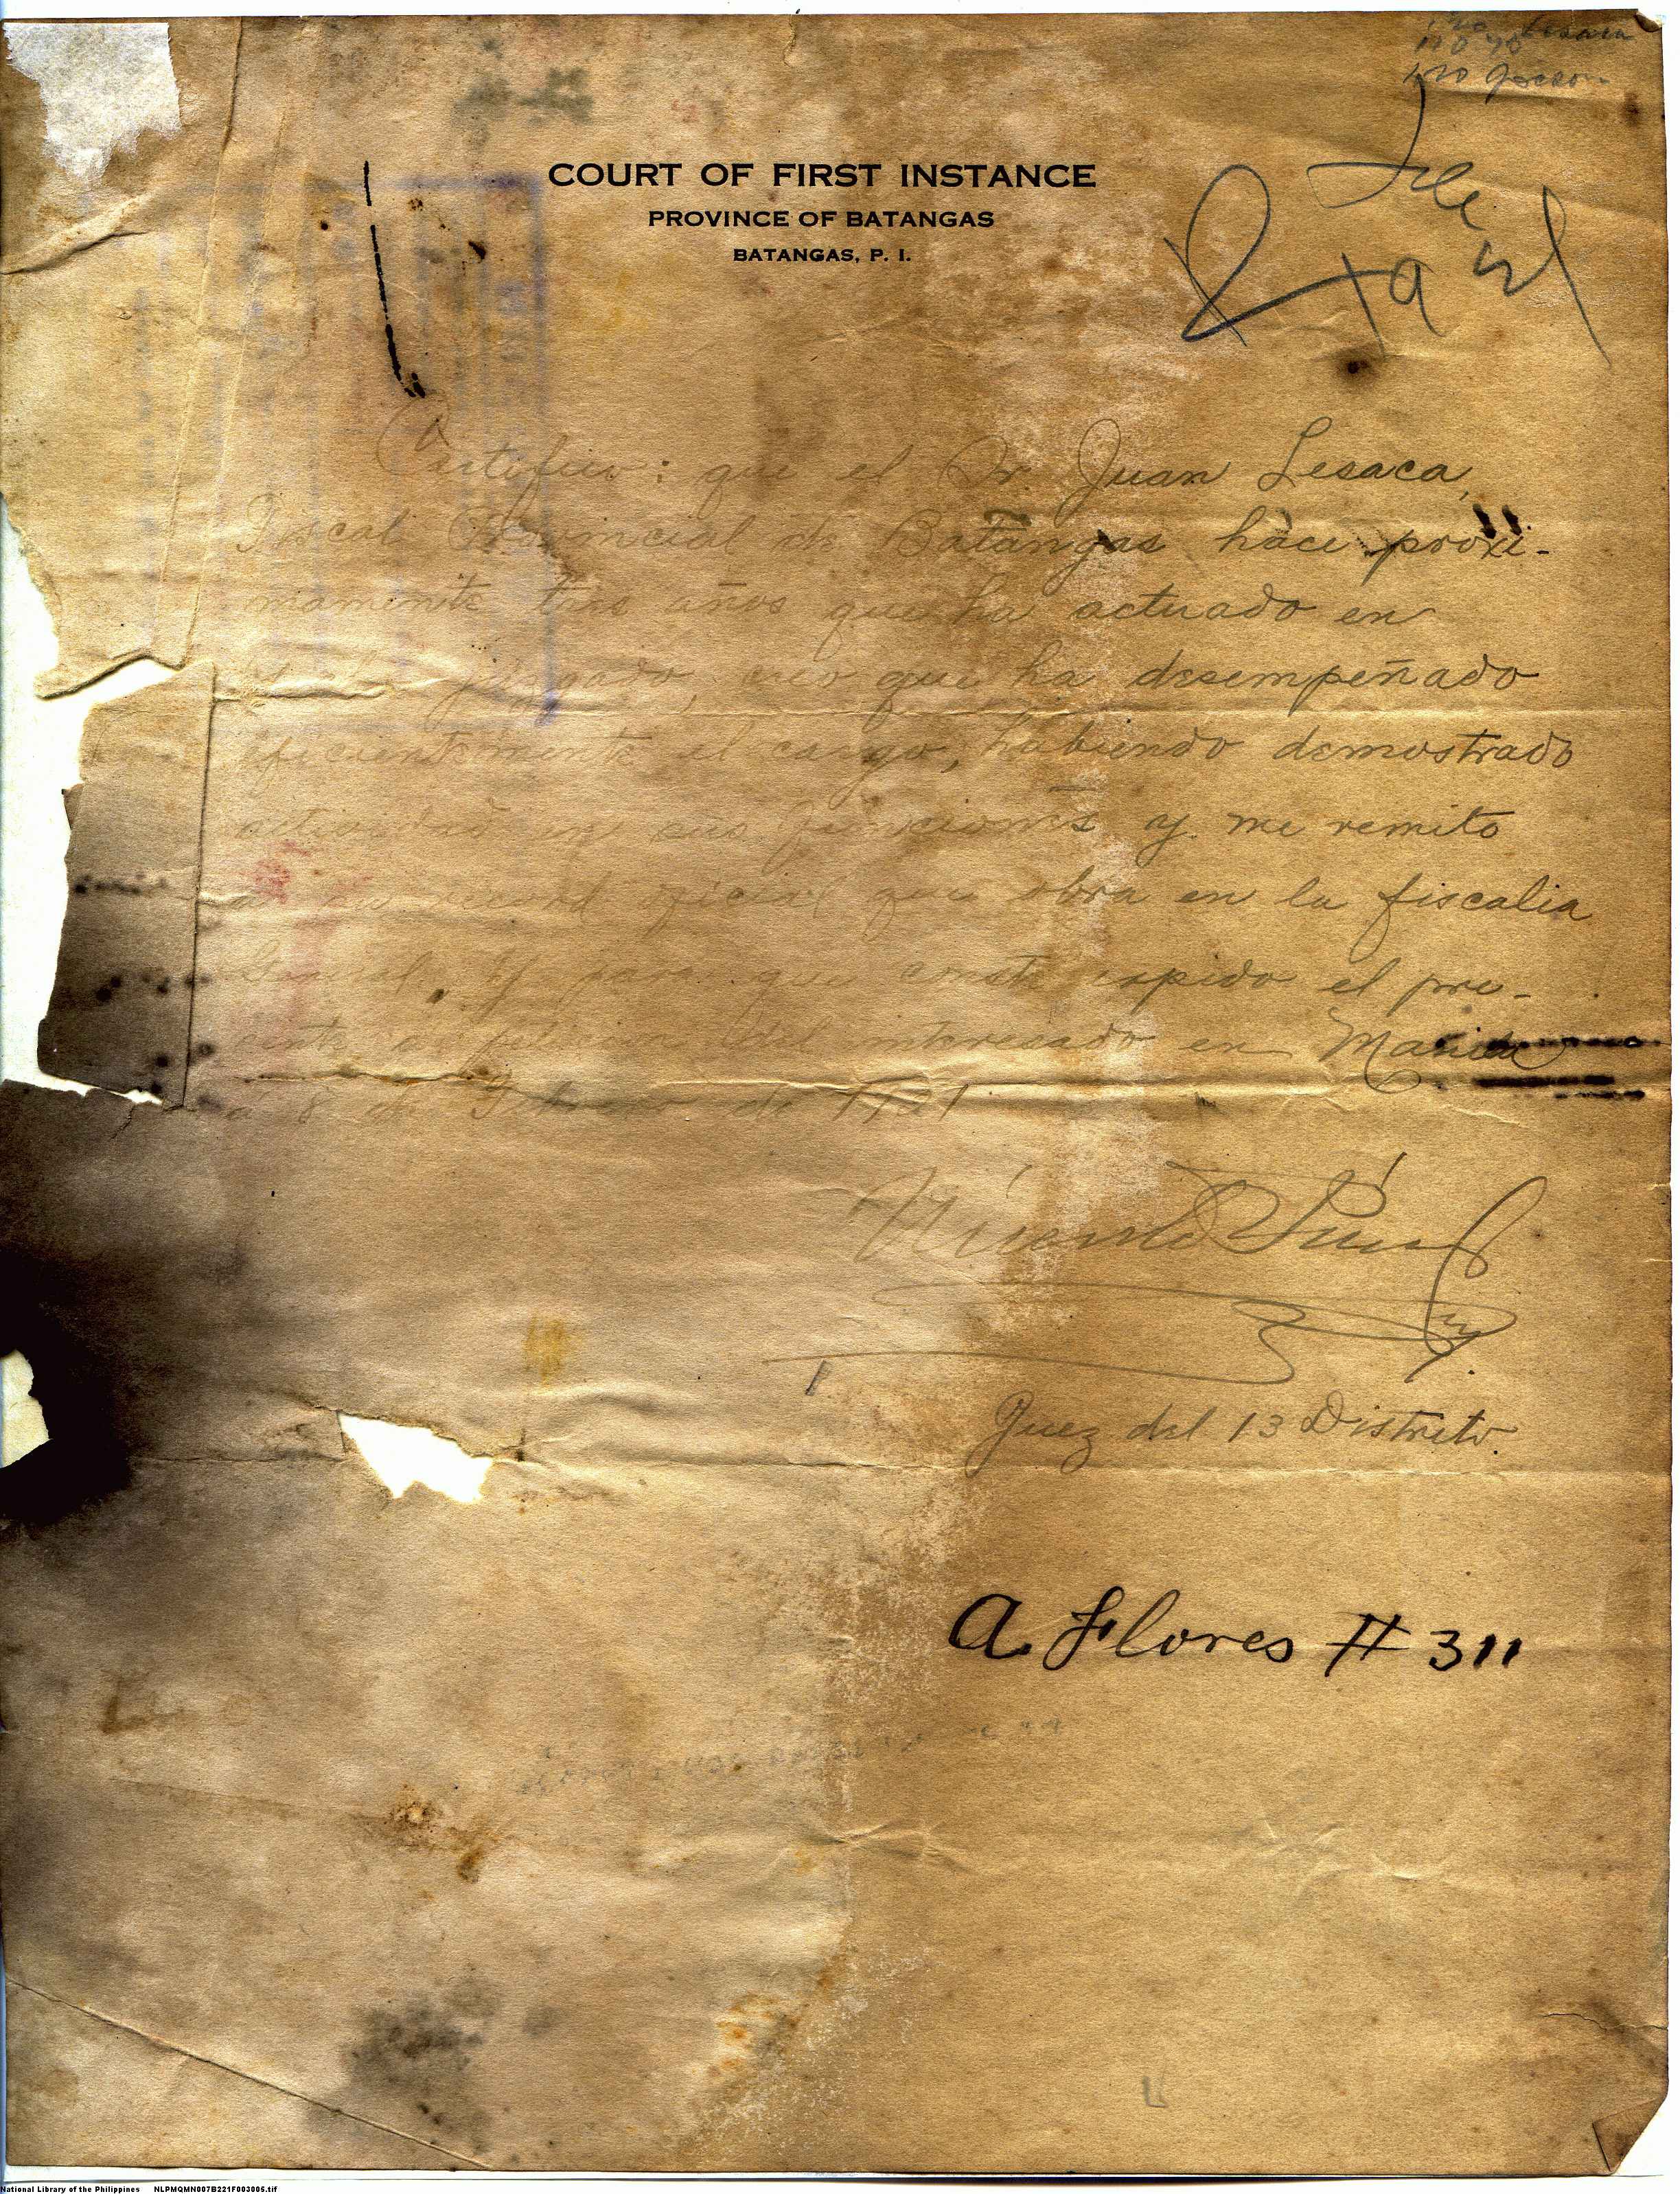 COURT OF FIRST INSTANCE
PROVINCE OF BATANGAS
BATANGAS, P. I.
File
Certifico: que el Sr. Juan Lesaca,
Fiscal Provincial de Batangas hace proxi-
mamente tres años que ha actuado en
juzgado, creo que ha desempeñado
eficientemente el cargo, habiendo demostrado
actividad en sus funciones y me remito
a su record oficial que obra en la fiscalia
General. Y para que conste expido el pre-
sente a peticion del interesado en Manila
a 8 de Febrero de 1921
Vicente
Juez del 13 Distrito.
A. Flores # 311
National Library of the Philippines NLPMQMN007B221F003006.tif